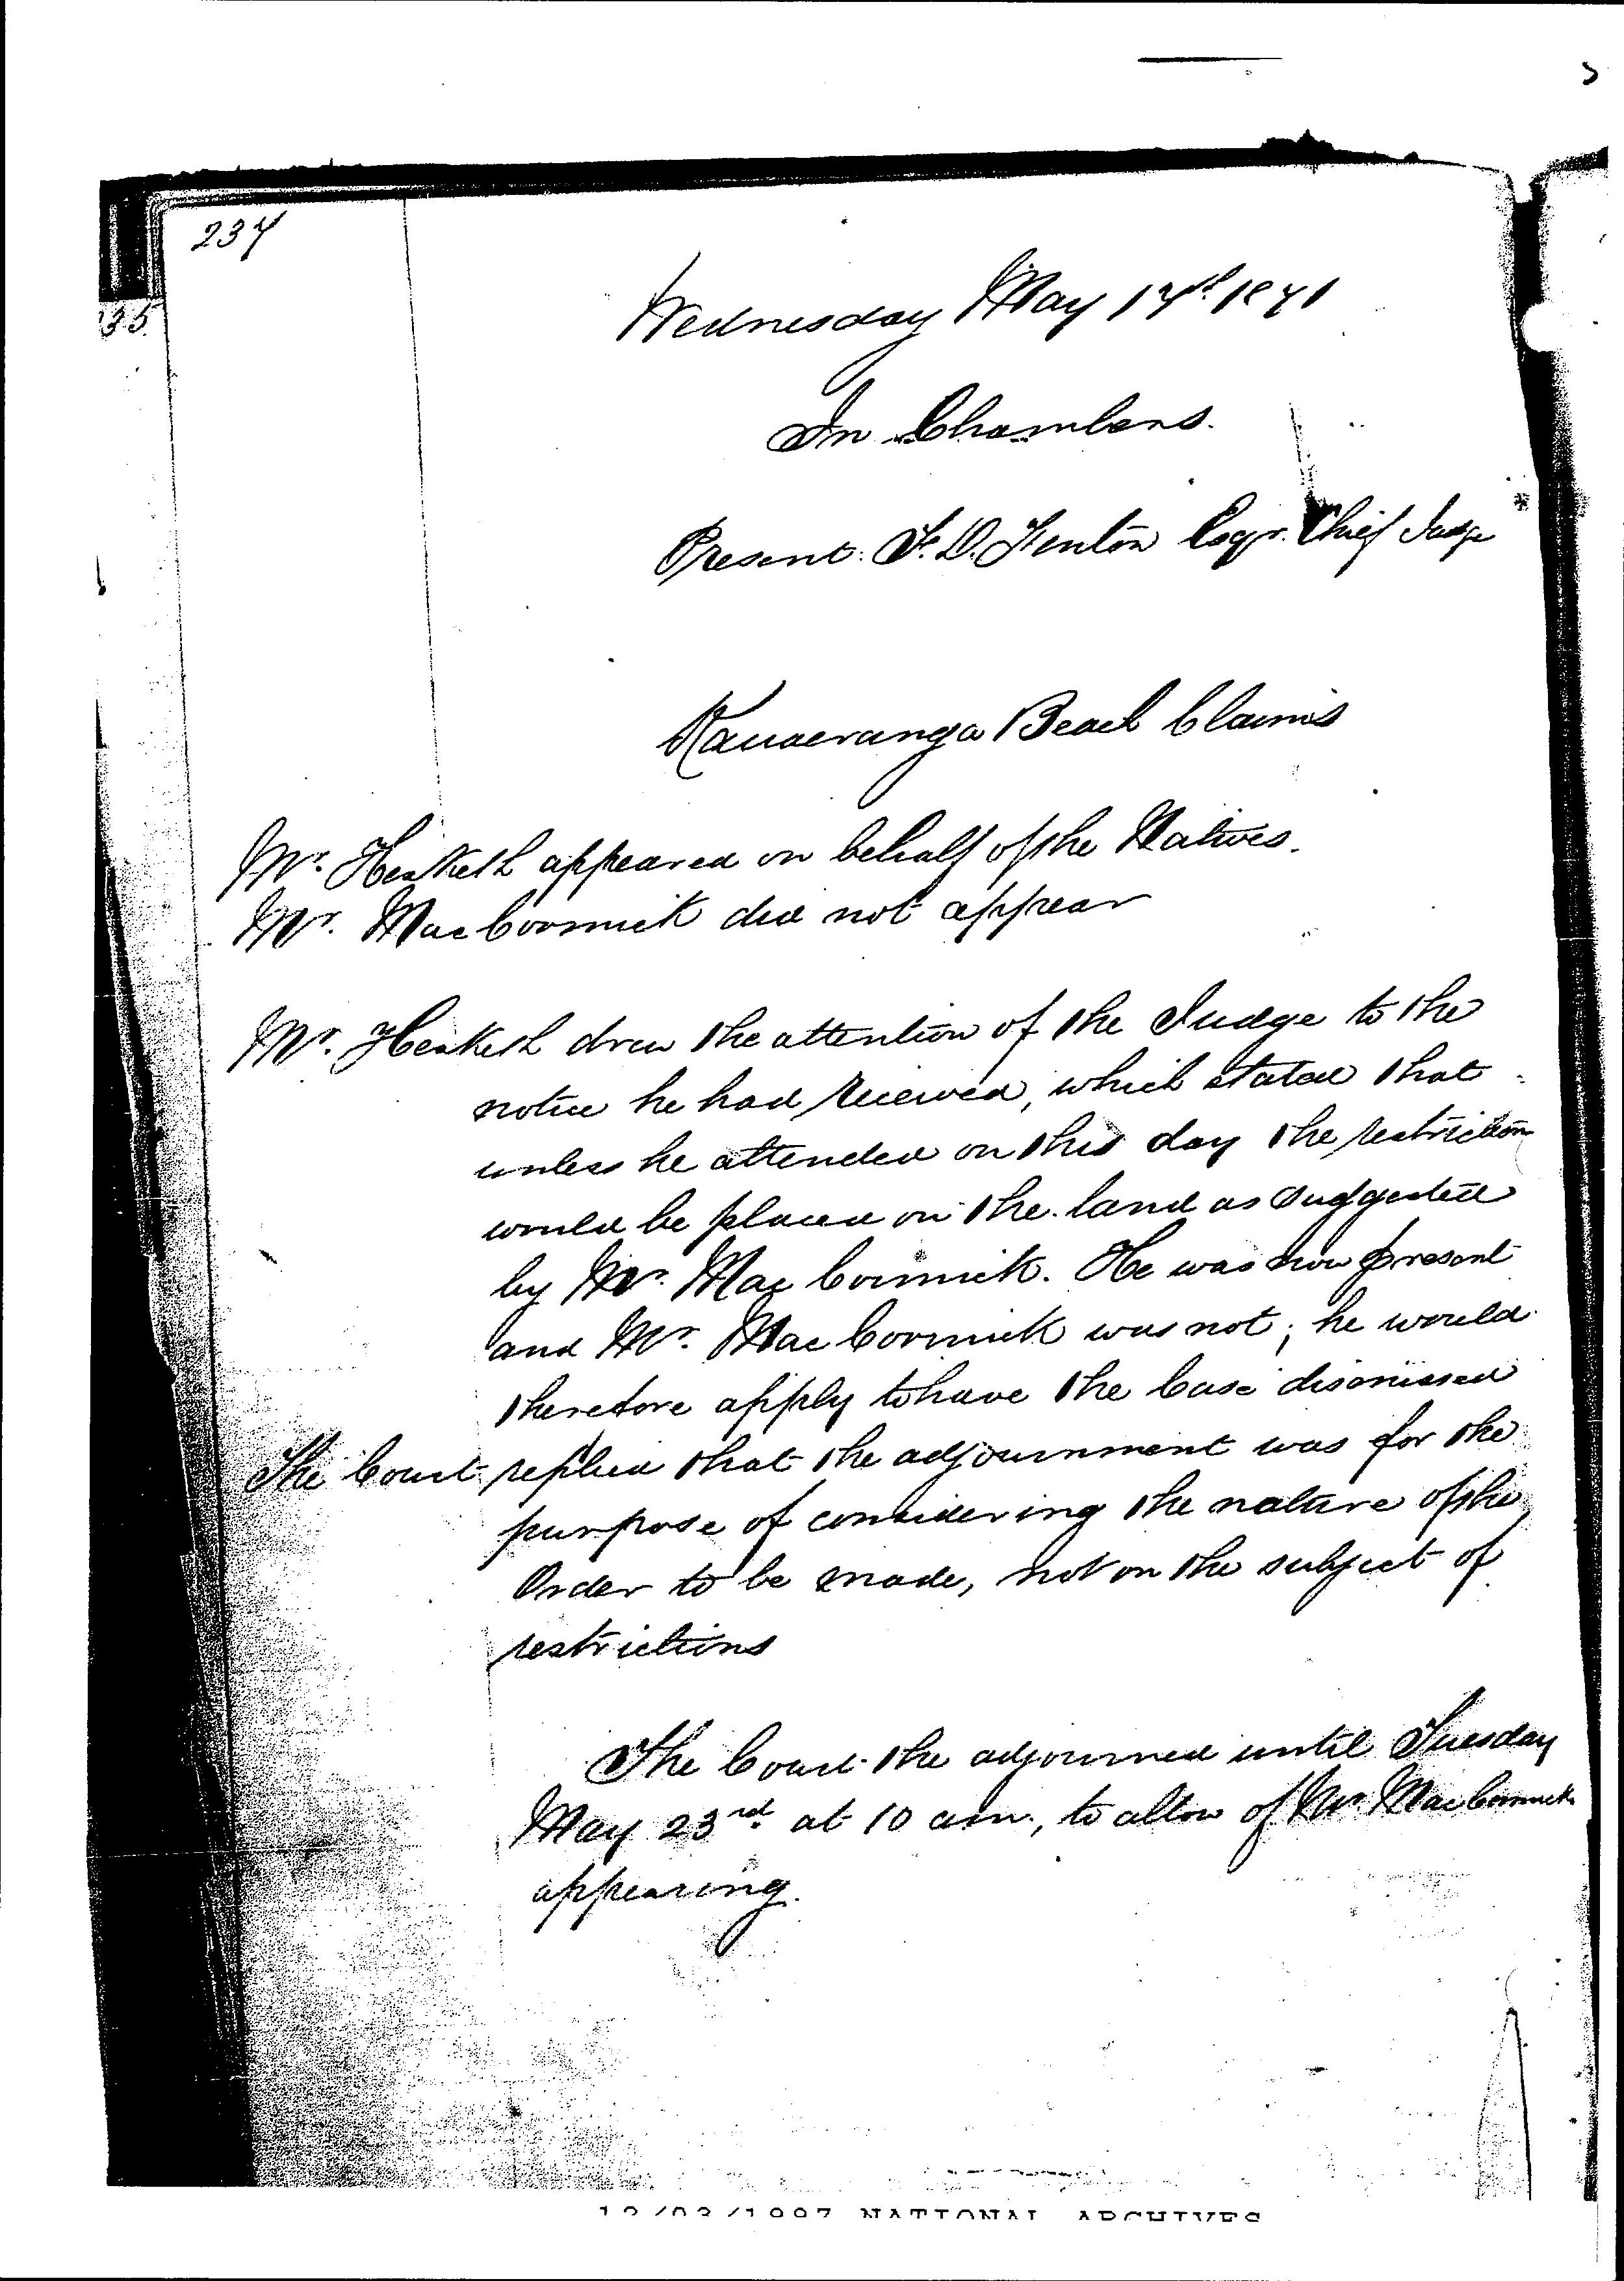 237
35
Wednesday May 17th 1871
In Chambers.
Present: F. D. Fenton Esqr. Chief Judge
Kauaeranga Beach Claims
Mr. Hesketh appeared on behalf of the Natives.
Mr. MacCormick did not appear
Mr. Hesketh drew the attention of the Judge to the
notice he had received, which stated that
unless he attended on this day the restriction
would be placed on the land as suggested
by Mr. MacCormick. He was now present
and Mr. MacCormick was not; he would
therefore apply to have the Case dismissed
The Court replied that the adjournment was for the
purpose of considering the nature of the
Order to be made, not on the subject of
restrictions
The Court the adjourned until Tuesday
May 23rd at 10 am., to allow of Mr. MacCormick
appearing.
12/03/1997 NATIONAL ARCHIVES